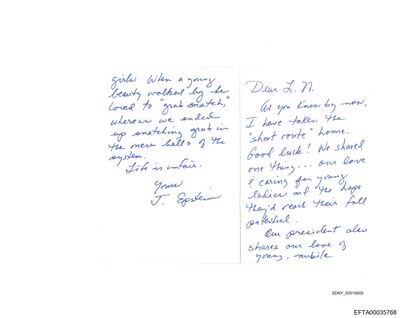 Dear L. N.
As you know by now,
I have taken the
"short route" home.
Good luck! We shared
one thing... our love
& caring for young
ladies and the hope
they'd reach their full
potential.
Our president also
shares our love of
young, nubile
girls. When a young
beauty walked by he
loved to "grab snatch,"
whereas we ended
up snatching grub in
the mess halls of the
system.
Life is unfair.
Yours
J. Epstein
SDNY_00019009
EFTA00035768